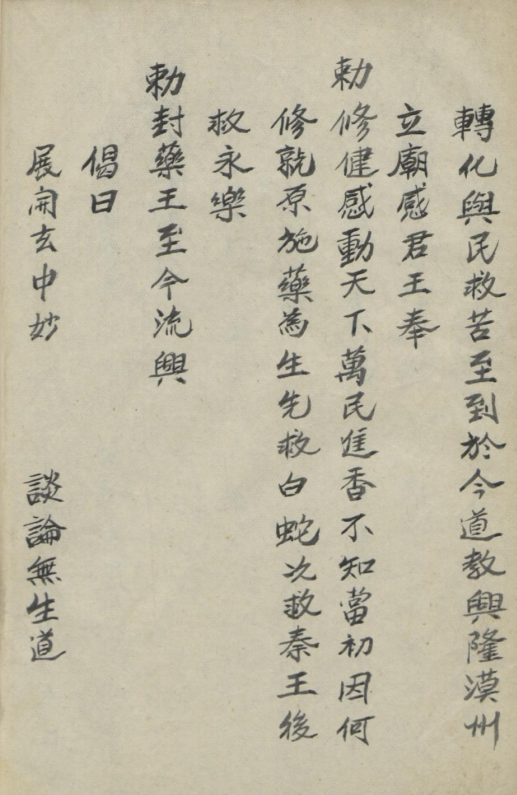 轉化與民救苦至到於今道教興隆漠州
立廟感君王奉
勅修健感動天下萬民進香不知當初因何
修就原施藥為生先救白蛇次救秦王後
救永樂
勅封藥王至今流興
偈曰
展開玄中妙　談論無生道